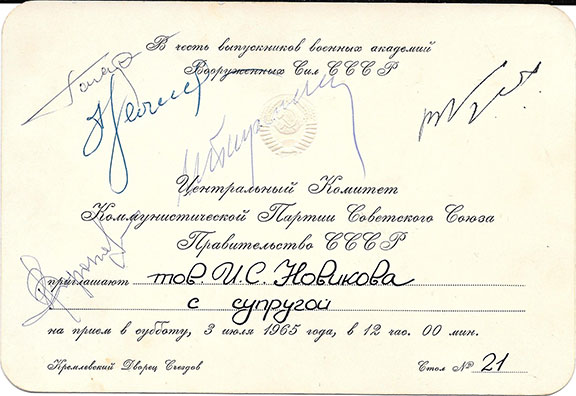 В честь выпускников военных академий
Вооруженных Сил СССР
Центральный Комитет
Коммунистической Партии Советского Союза
Правительство СССР
приглашают тов. И.С. Новикова
с супругой
на прием в субботу, 3 июля 1965 года, в 12 час. 00 мин.
Кремлевский Дворец Съездов Стол № 21